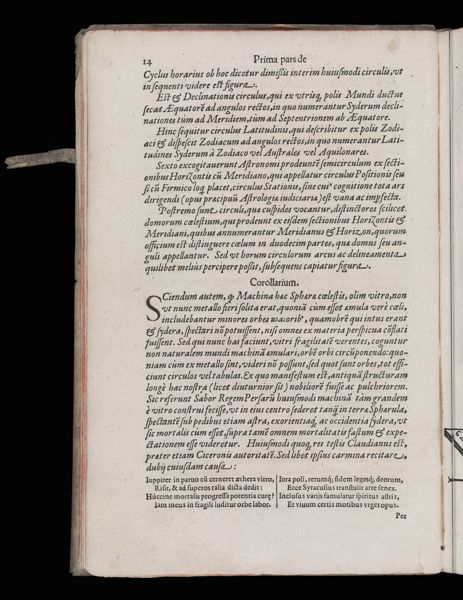 14 Prima pars de
Cyclus horarius ob hoc dicetur dimissis interim huiusmodi circulis, vt
in sequenti videre est figura.
Est & Declinationis circulus, qui ex vtrisq; polis Mundi ductus
secat Æquatorē ad angulos rectos, in quo numerantur Syderum decli-
nationes tùm ad Meridiem, tùm ad Septentrionem ab Æquatore.
Hinc sequitur circulus Latitudinis, qui describitur ex polis Zodi-
aci & dispescit Zodiacum ad angulos rectos, in quo numerantur Lati-
tudines Syderum à Zodiaco vel Australes vel Aquilonares.
Sexto excogitauerunt Astronomi prodeuntē semicirculum ex secti-
onibus Horizontis cū Meridiano, qui appellatur circulus Positionis seu
si cū Firmico loq; placet, circulus Stationis, sine cuiꝰ cognitione tota ars
dirigendi (opus præcipuū Astrologiæ iudiciariæ) est vana ac impfecta.
Postremo sunt circuli, quæ cuspides vocantur, distinctores scilicet
domorum cælestium, qui prodeunt ex eisdem sectionibus Horizontis &
Meridiani, quibus annumerantur Meridianus & Horizon, quorum
officium est distinguere cælum in duodecim partes, quæ domus seu an-
guli appellantur. Sed vt horum circulorum arcus ac delineamenta
quilibet meliùs percipere possit, subsequens capiatur figura.
Corollarium.
SCiendum autem, ꝙ Machina hæc Sphæra cælestis, olim vitro, non
vt nunc metallo fieri solita erat, quoniā cum esset æmula verè cæli,
includebantur minores orbes maioribꝰ, quamobrē qui intus erant
& sydera, spectari nō potuissent, nisi omnes ex materia perspicua cōflati
fuissent. Sed qui nunc hāc faciunt, vitri fragilitatē verentes, coguntur
non naturalem mundi machinā æmulari, orbē orbi circūponendo: quo-
niam cùm ex metallo sint, videri nō possunt, sed quot sunt orbes, tot effi-
ciunt circulos vel tabulas. Ex quo manifestum est, antiquā structuram
longè hac nostra (licet diuturnior sit) nobiliorē fuisse ac pulchriorem.
Sic referunt Sabor Regem Persarū huiusmodi machinā tàm grandem
è vitro construi fecisse, vt in eius centro sederet tanq̄ in terra Spharula,
spectantē sub pedibus etiam astra, exorientiaq; ac occidentia sydera, vt
sic mortalis cùm esset, supra tamē omnem mortalitatis fastum & expe-
ctationem esse videretur. Huiusmodi quoq; rei testis Claudianus est,
præter etiam Ciceronis autoritatē. Sed libet ipsius carmina recitare,
dubij cuiusdam causa:
Iuppiter in paruo cū cerneret æthera vitro,
Risit, & ad superos talia dicta dedit:
Húccine mortalis progressa potentia curę?
Iam meus in fragili luditur orbe labor.
Iura poli, rerumq; fidem legesq; deorum,
Ecce Syracusius transtulit arte senex.
Inclusus varijs famulatur spiritus astris,
Et viuum certis motibus vrget opus.
Per